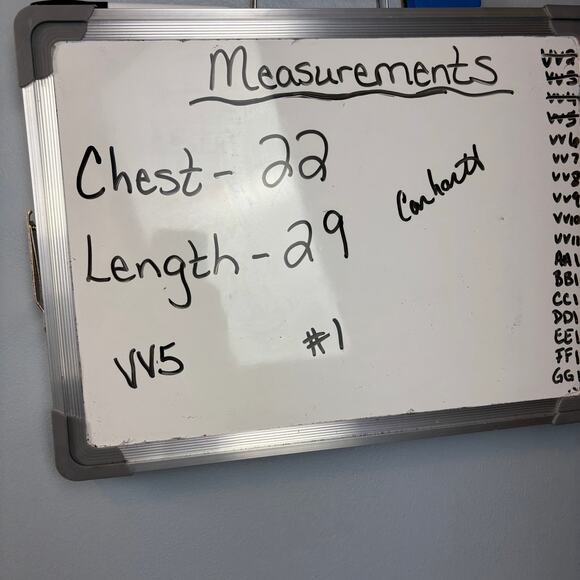 Measurements
Chest - 22
Length - 29
Carhartt
VV5 #1
VV2
VV3
VV4
VV5
VV6
VV7
VV8
VV9
VV10
VV11
AA1
BB1
CC1
DD1
EE1
FF1
GG1